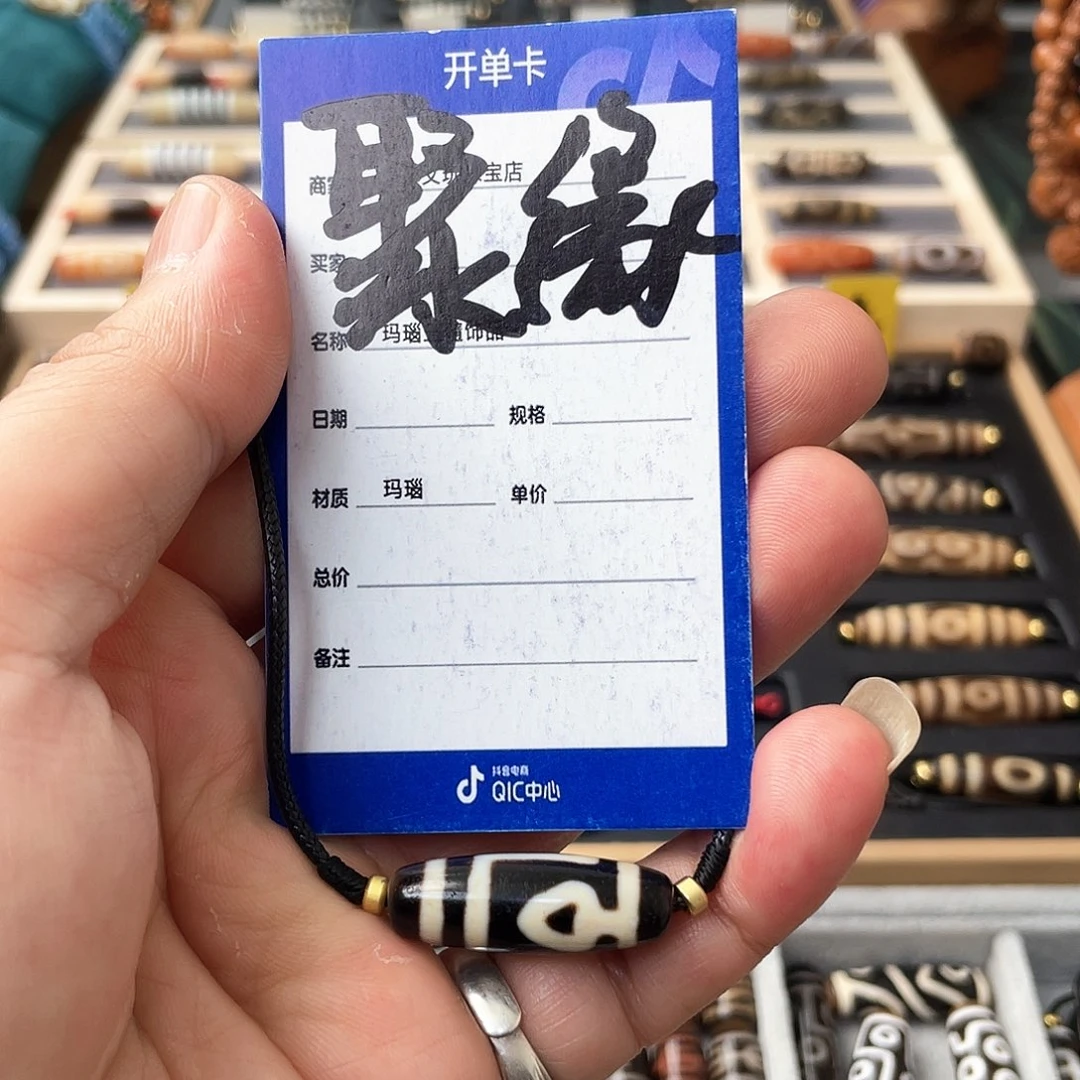 开单卡
聚缘
商家 宝店
买家
名称 玛瑙 饰品
日期 规格
材质 玛瑙 单价
总价
备注
抖音电商
QIC中心